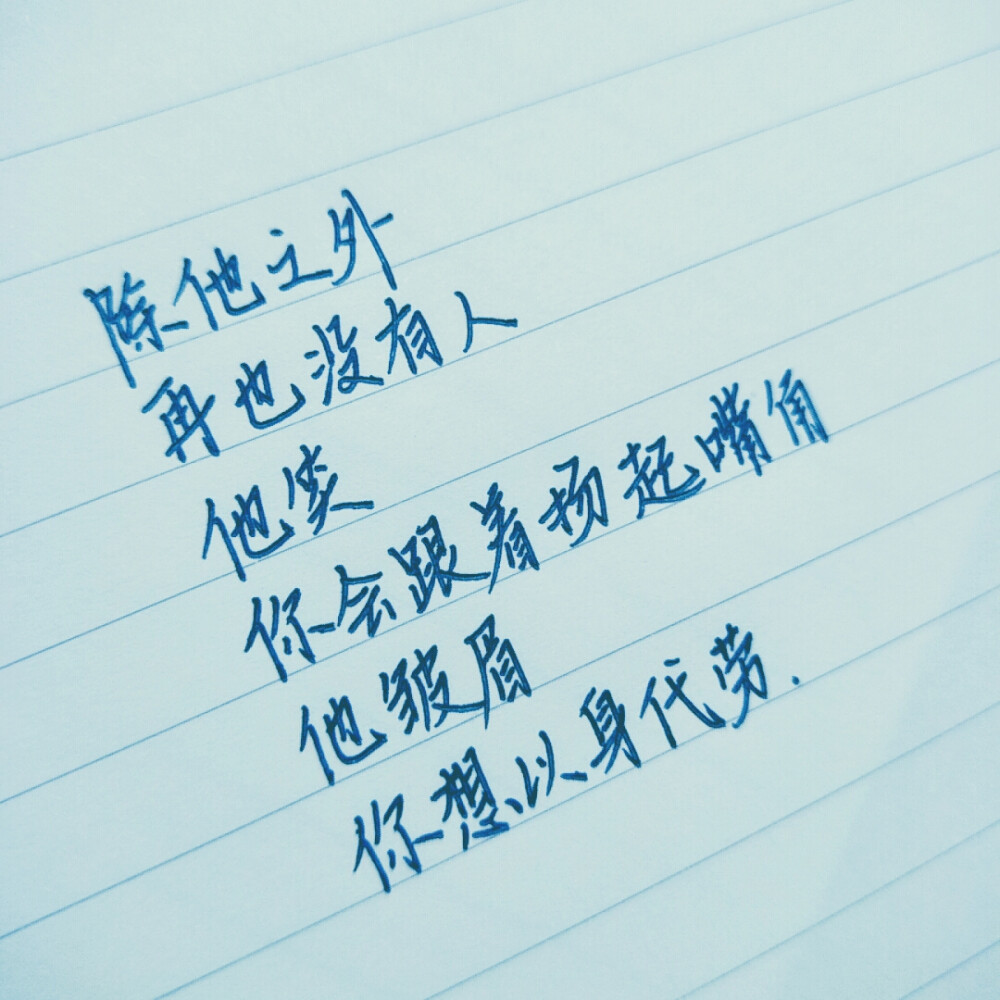 除他之外
再也没有人
他笑
你会跟着扬起嘴角
他皱眉
你想以身代劳.